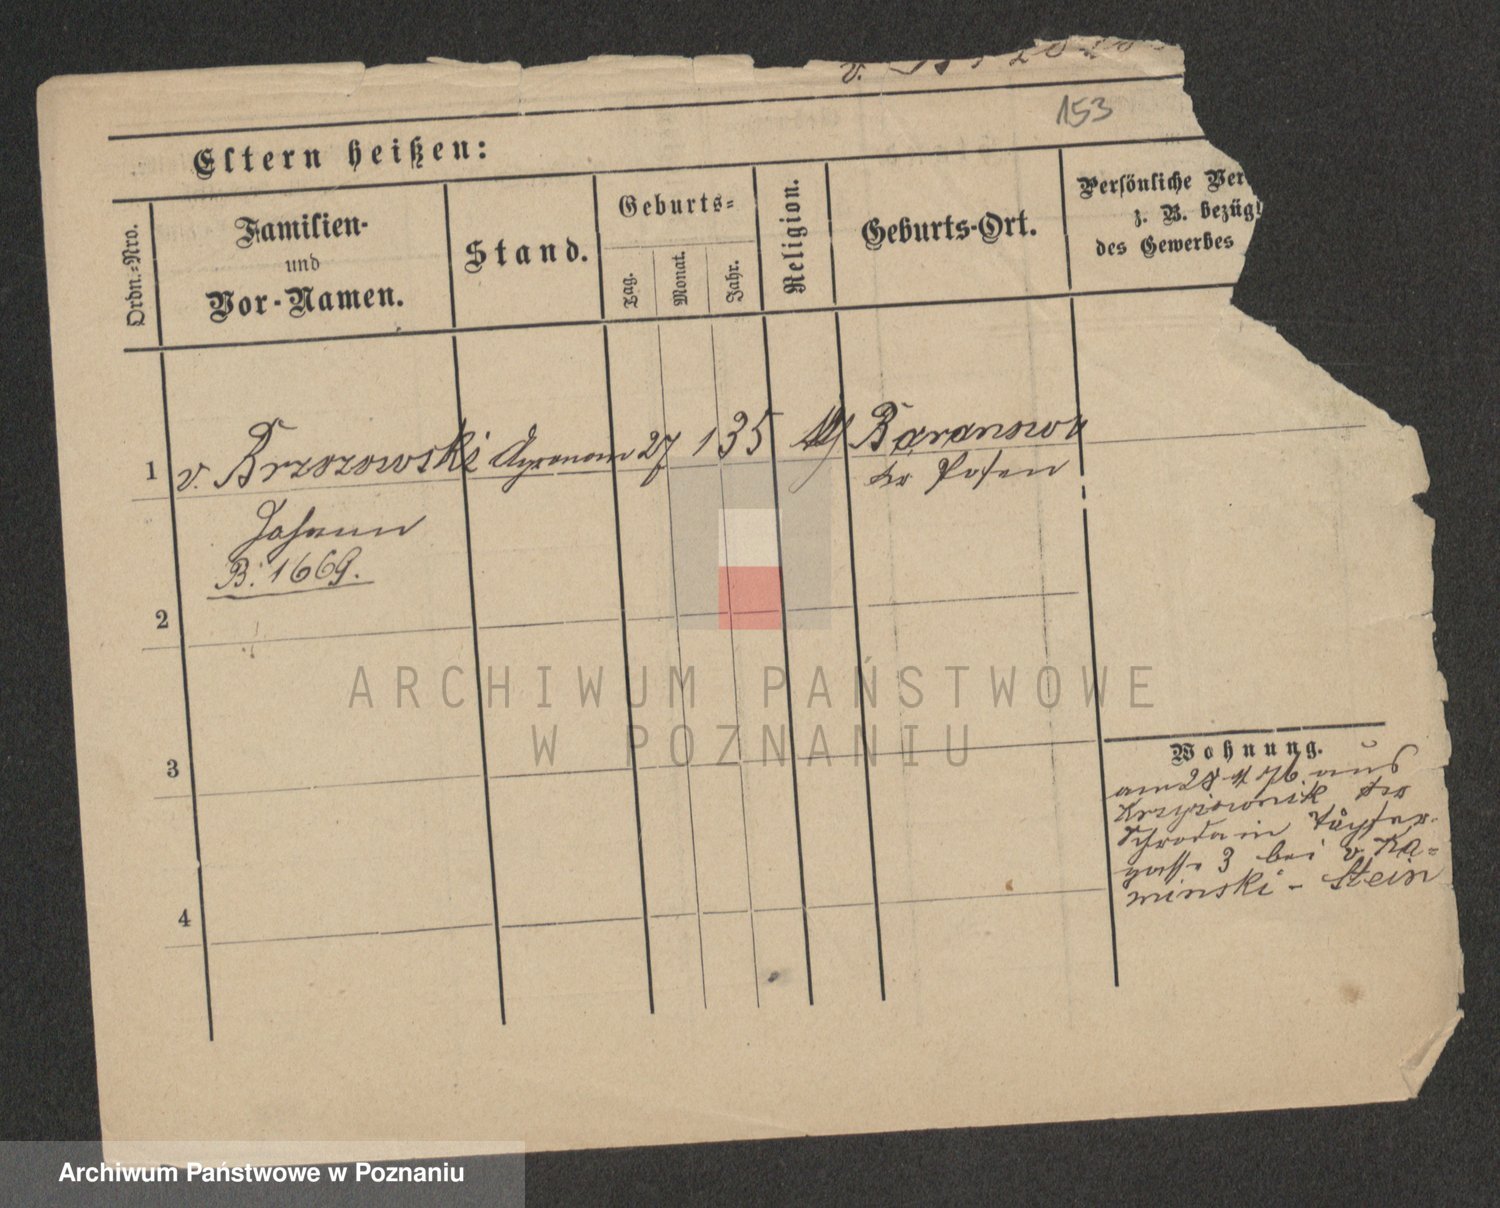 153
Eltern heißen:
Ordn.-Nro.
Familien-
und
Vor-Namen.
Stand.
Geburts-
Tag.
Monat.
Jahr.
Religion.
Geburts-Ort.
Persönliche Ver
z. B. bezügl
des Gewerbes
1 v. Brzozowski Agronom 27 1 35 Baranowo
Kr Posen
Johann
B: 1669.
2
3
4
Wohnung.
am 28 76 aus
Krzyżownik Kr
Schroda in Töpfer-
gasse 3 bei v. Ka-
minski - Stein
ARCHIWUM PAŃSTWOWE
W POZNANIU
Archiwum Państwowe w Poznaniu